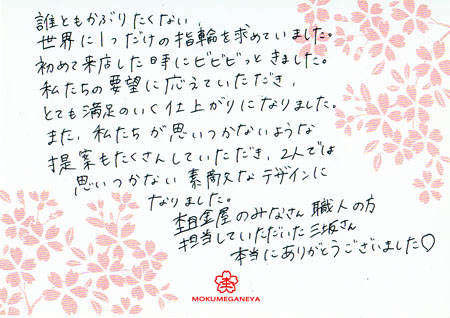 誰ともかぶりたくない、
世界に1つだけの指輪を求めていました。
初めて来店した日時にビビビっときました。
私たちの要望に応えていただき、
とても満足のいく仕上がりになりました。
また、私たちが思いつかないような
提案もたくさんしていただき、2人では
思いつかない素敵なデザインに
なりました。
杢目金屋のみなさん 職人の方
担当していただいた三坂さん
本当にありがとうございました♡
MOKUMEGANEYA